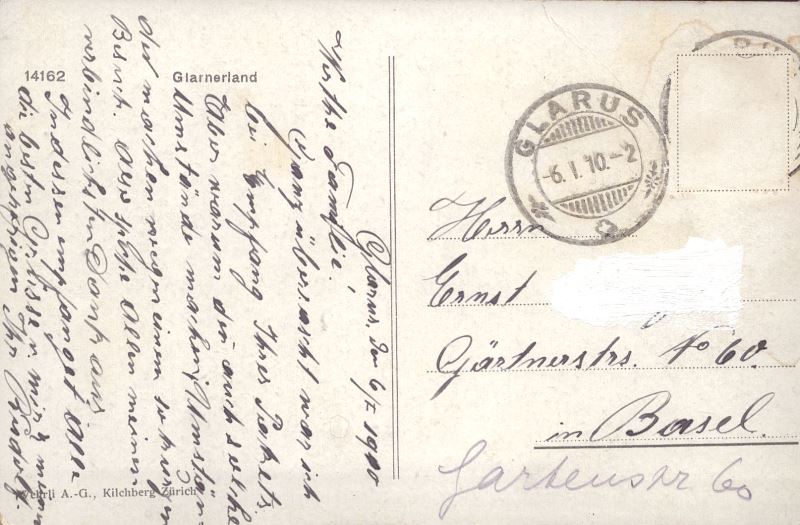 14162 Glarnerland
Glarus, den 6/I 1910
Werthe Familie!
Ganz überascht war ich
bei Empfang Ihres Pakets
Aber warum den auch solche
Umstände machen! Umstän-
die machen wegen einem
Besuch. Aus spreche Allen meinen
verbindlichsten Dank aus
Indessen empfanget alle
die besten Grüsse von mir & meinen
angehörigen Ihr Rudolf.
Wehrli A.-G., Kilchberg Zürich
GLARUS
-6.I.10.-2
Herrn
Ernst
Gärtnerstrs. No 60.
in Basel.
Gartenstr 60